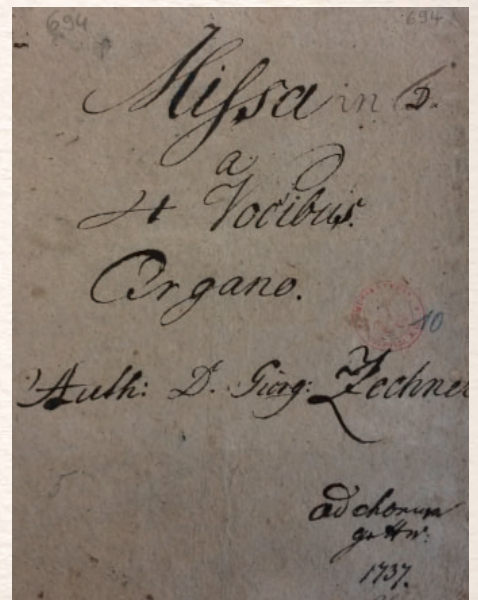 694 694
Missa in D.
a
4 Vocibus.
Organo.
10
Auth: D. Giorg: Zechner
ad chorum
1737.